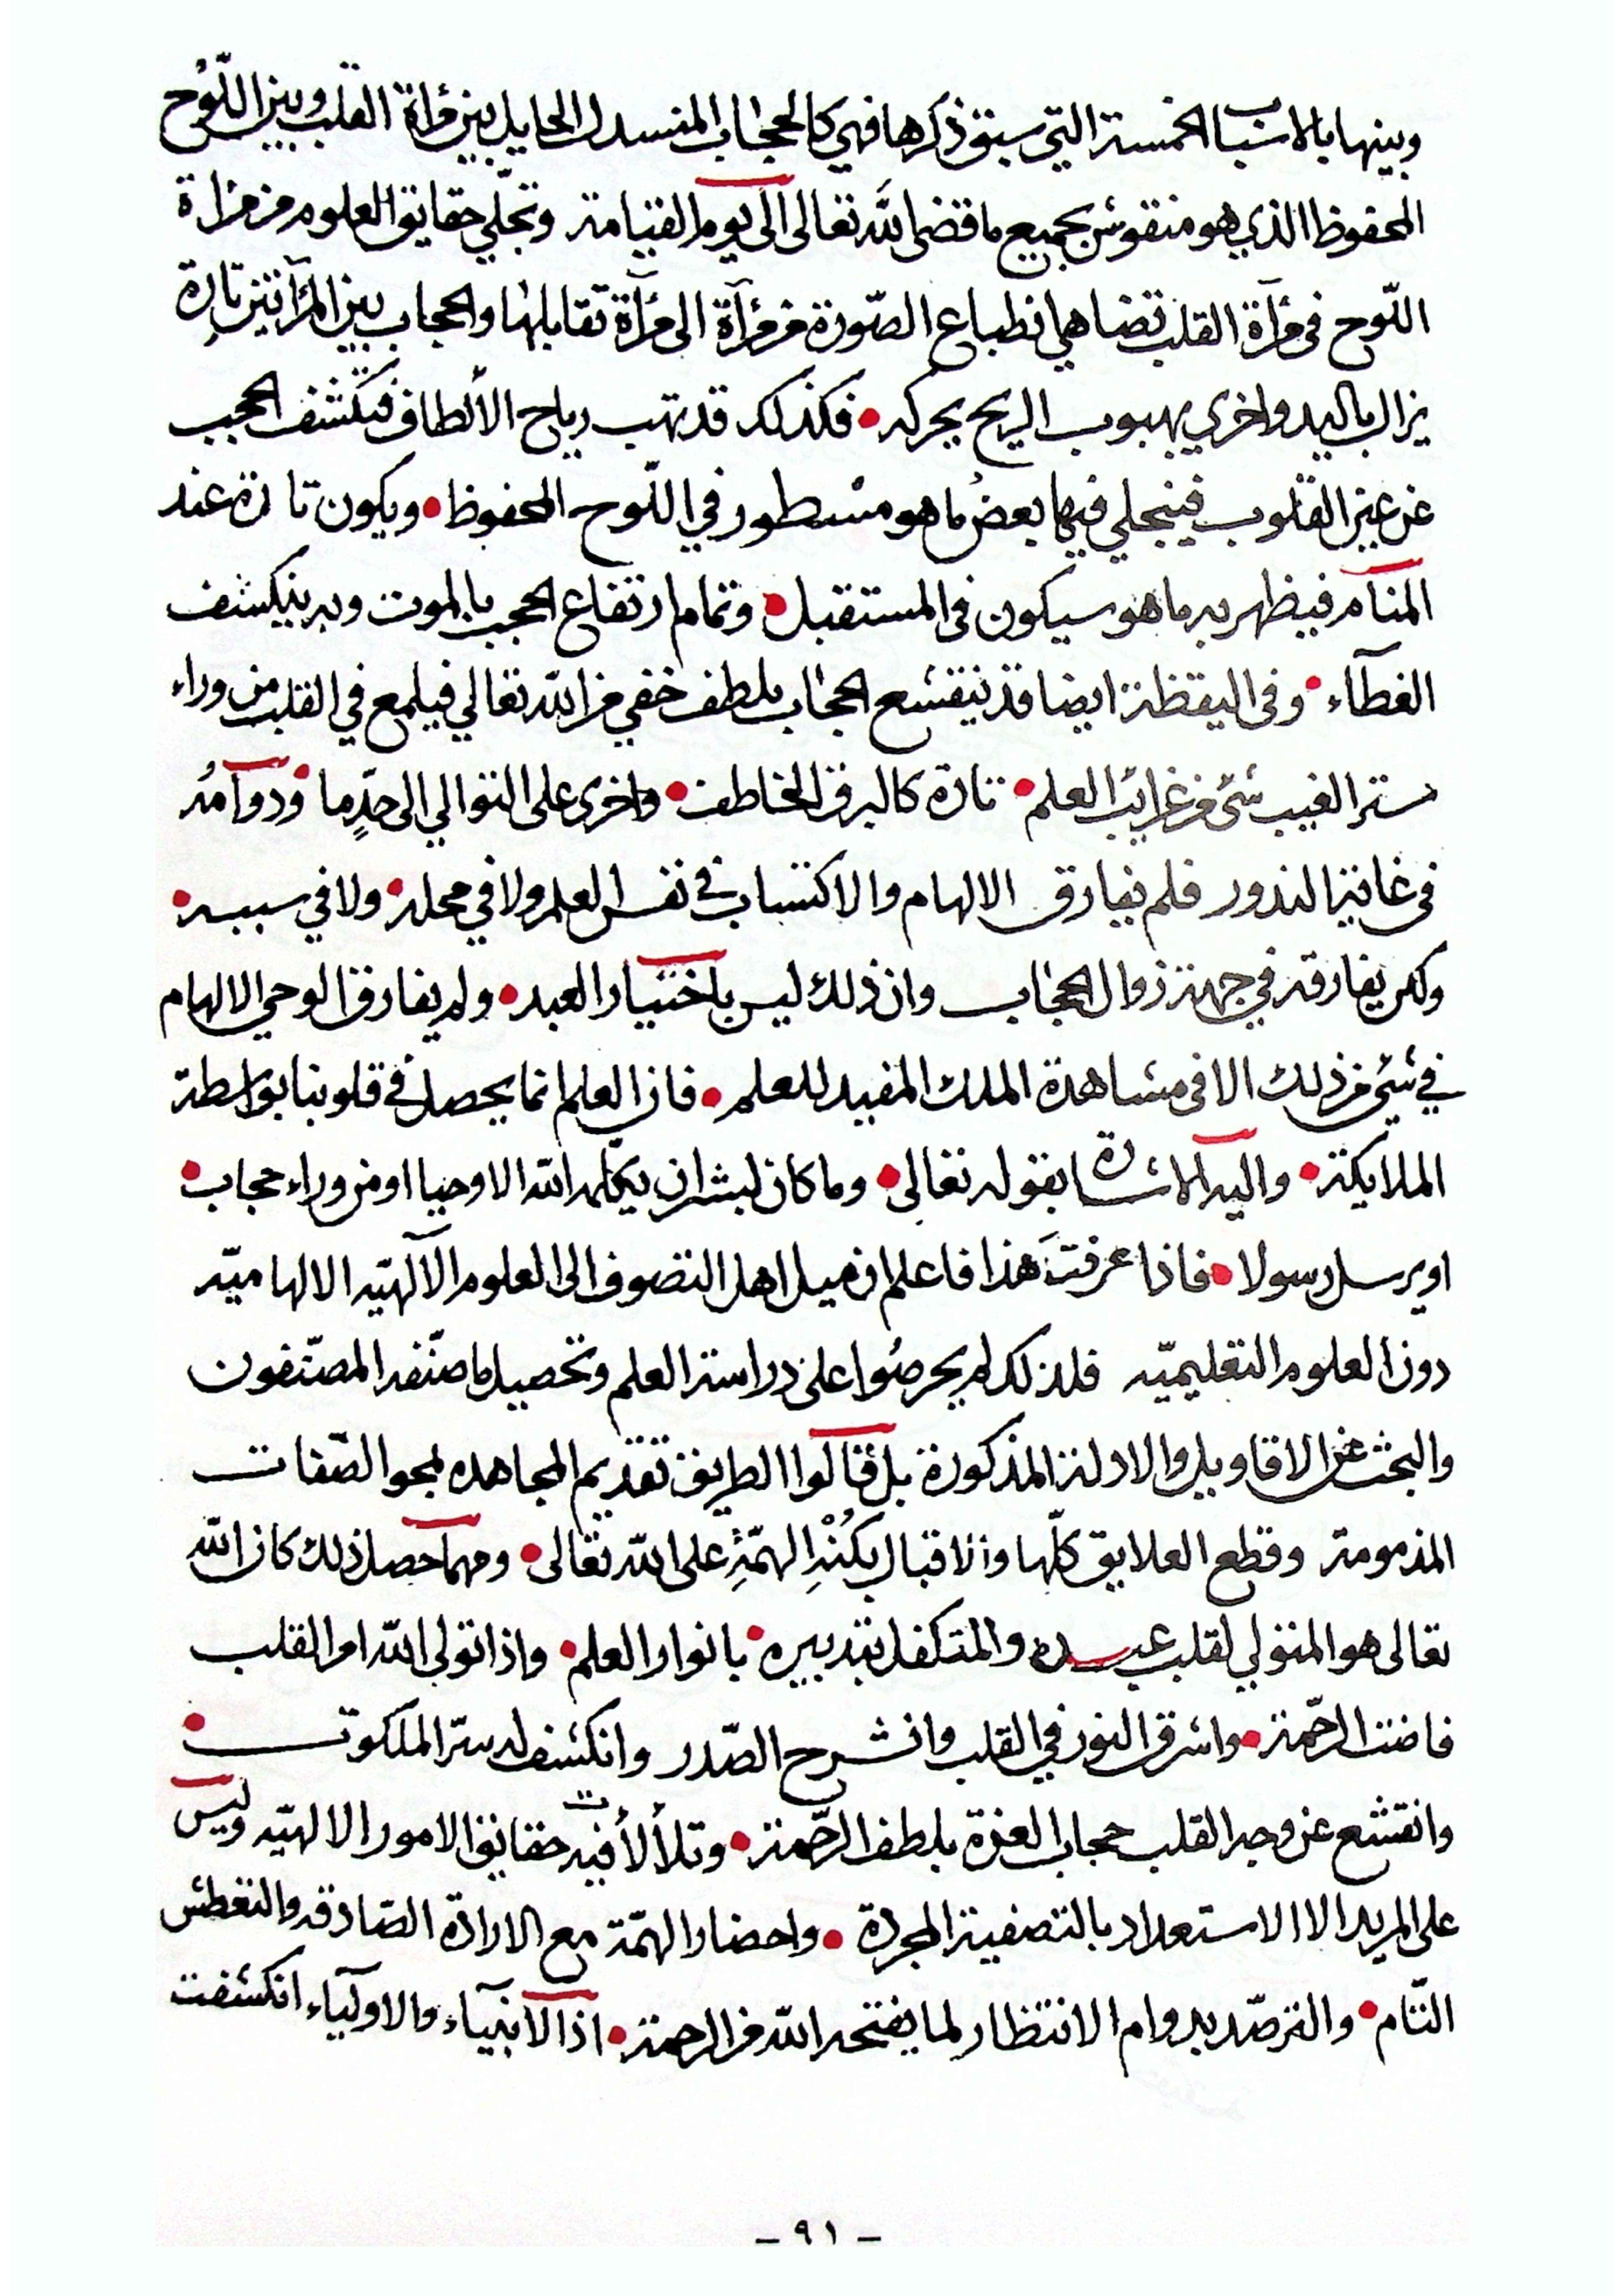 وبينها بالاسباب الخمسة التي سبق ذكرها فهي كالحجاب المنسدل الحايل بين مرآة القلب وبين اللّوح
المحفوظ الذي هو منقوش بجميع ما قضى اللّه تعالى الى يوم القيامة وتجلّي حقايق العلوم من مرآة
اللّوح في مرآة القلب تضاهي انطباع الصّورة من مرآة الى مرآة تقابلها والحجاب بين المرآتين تارة
يزال باليد واخري بهبوب الريح يحركه • فكذلك قد تهب رياح الألطاف فتكشف الحجب
عن عين القلوب فينجلي فيها بعض ما هو مسطور في اللّوح المحفوظ • ويكون تارة عند
المنام فيظهر به ما هو سيكون في المستقبل • وتمام ارتفاع الحجب بالموت وبه ينكشف
الغطآء • وفي اليقظة ايضا قد ينقشع الحجاب بلطف خفي من اللّه تعالي فيلمع في القلب من وراء
ستر الغيب شئ من غرائب العلم • تارة كالبرق الخاطف • واخرى على التوالي الى حدٍّ ما • ودوامُه
في غاية الندور فلم يفارق الالهام والاكتساب في نفس العلم ولا في محله • ولا في سببه •
ولكن يفارقه في جهة زوال الحجاب وان ذلك ليس باختيار العبد • ولم يفارق الوحي الالهام
في شئ من ذلك الا في مشاهدة الملك المفيد للعلم • فان العلم انما يحصل في قلوبنا بواسطة
الملايكة • واليه الاشارة بقوله تعالى • وما كان لبشر ان يكلّمه اللّه الا وحيا او من وراء حجاب •
او يرسل رسولا • فاذا عرفتَ هذا فاعلم ان ميل اهل التصوف الى العلوم الآلهيّه الالهاميّه
دون العلوم التعليميّه فلذلك لم يحرصُوا على دراسة العلم وتحصيل ما صنّفه المصنّفون
والبحث عن الاقاويل والادلة المذكورة بل قالوا الطريق تقديم المجاهده بمحو الصّفات
المذمومة وقطع العلايق كلّها والاقبال بكُنْهِ الهمّةِ على اللّه تعالى • ومهما حصل ذلك كان اللّه
تعالى هو المتولي لقلب عبده والمتكفل بتدبيره • بانوار العلم • واذا تولى اللّه امر القلب
فاضت الرحّمة • واشرق النور في القلب وانشرح الصّدر وانكشف له سرّ الملكوت •
وانقشع عن وجه القلب حجاب العزة بلطف الرحّمة • وتلألأت فيه حقايق الامور الالهيّه وليس
على المريد الا الاستعداد بالتصفية المجردة • واحضار الهمّة مع الارادة الصّادقه والتعطش
التّام • والترصّد بدوام الانتظار لما يفتحه اللّه من الرحمة • اذ الانبيآء والاوليآء انكشفت
- ٩١ -